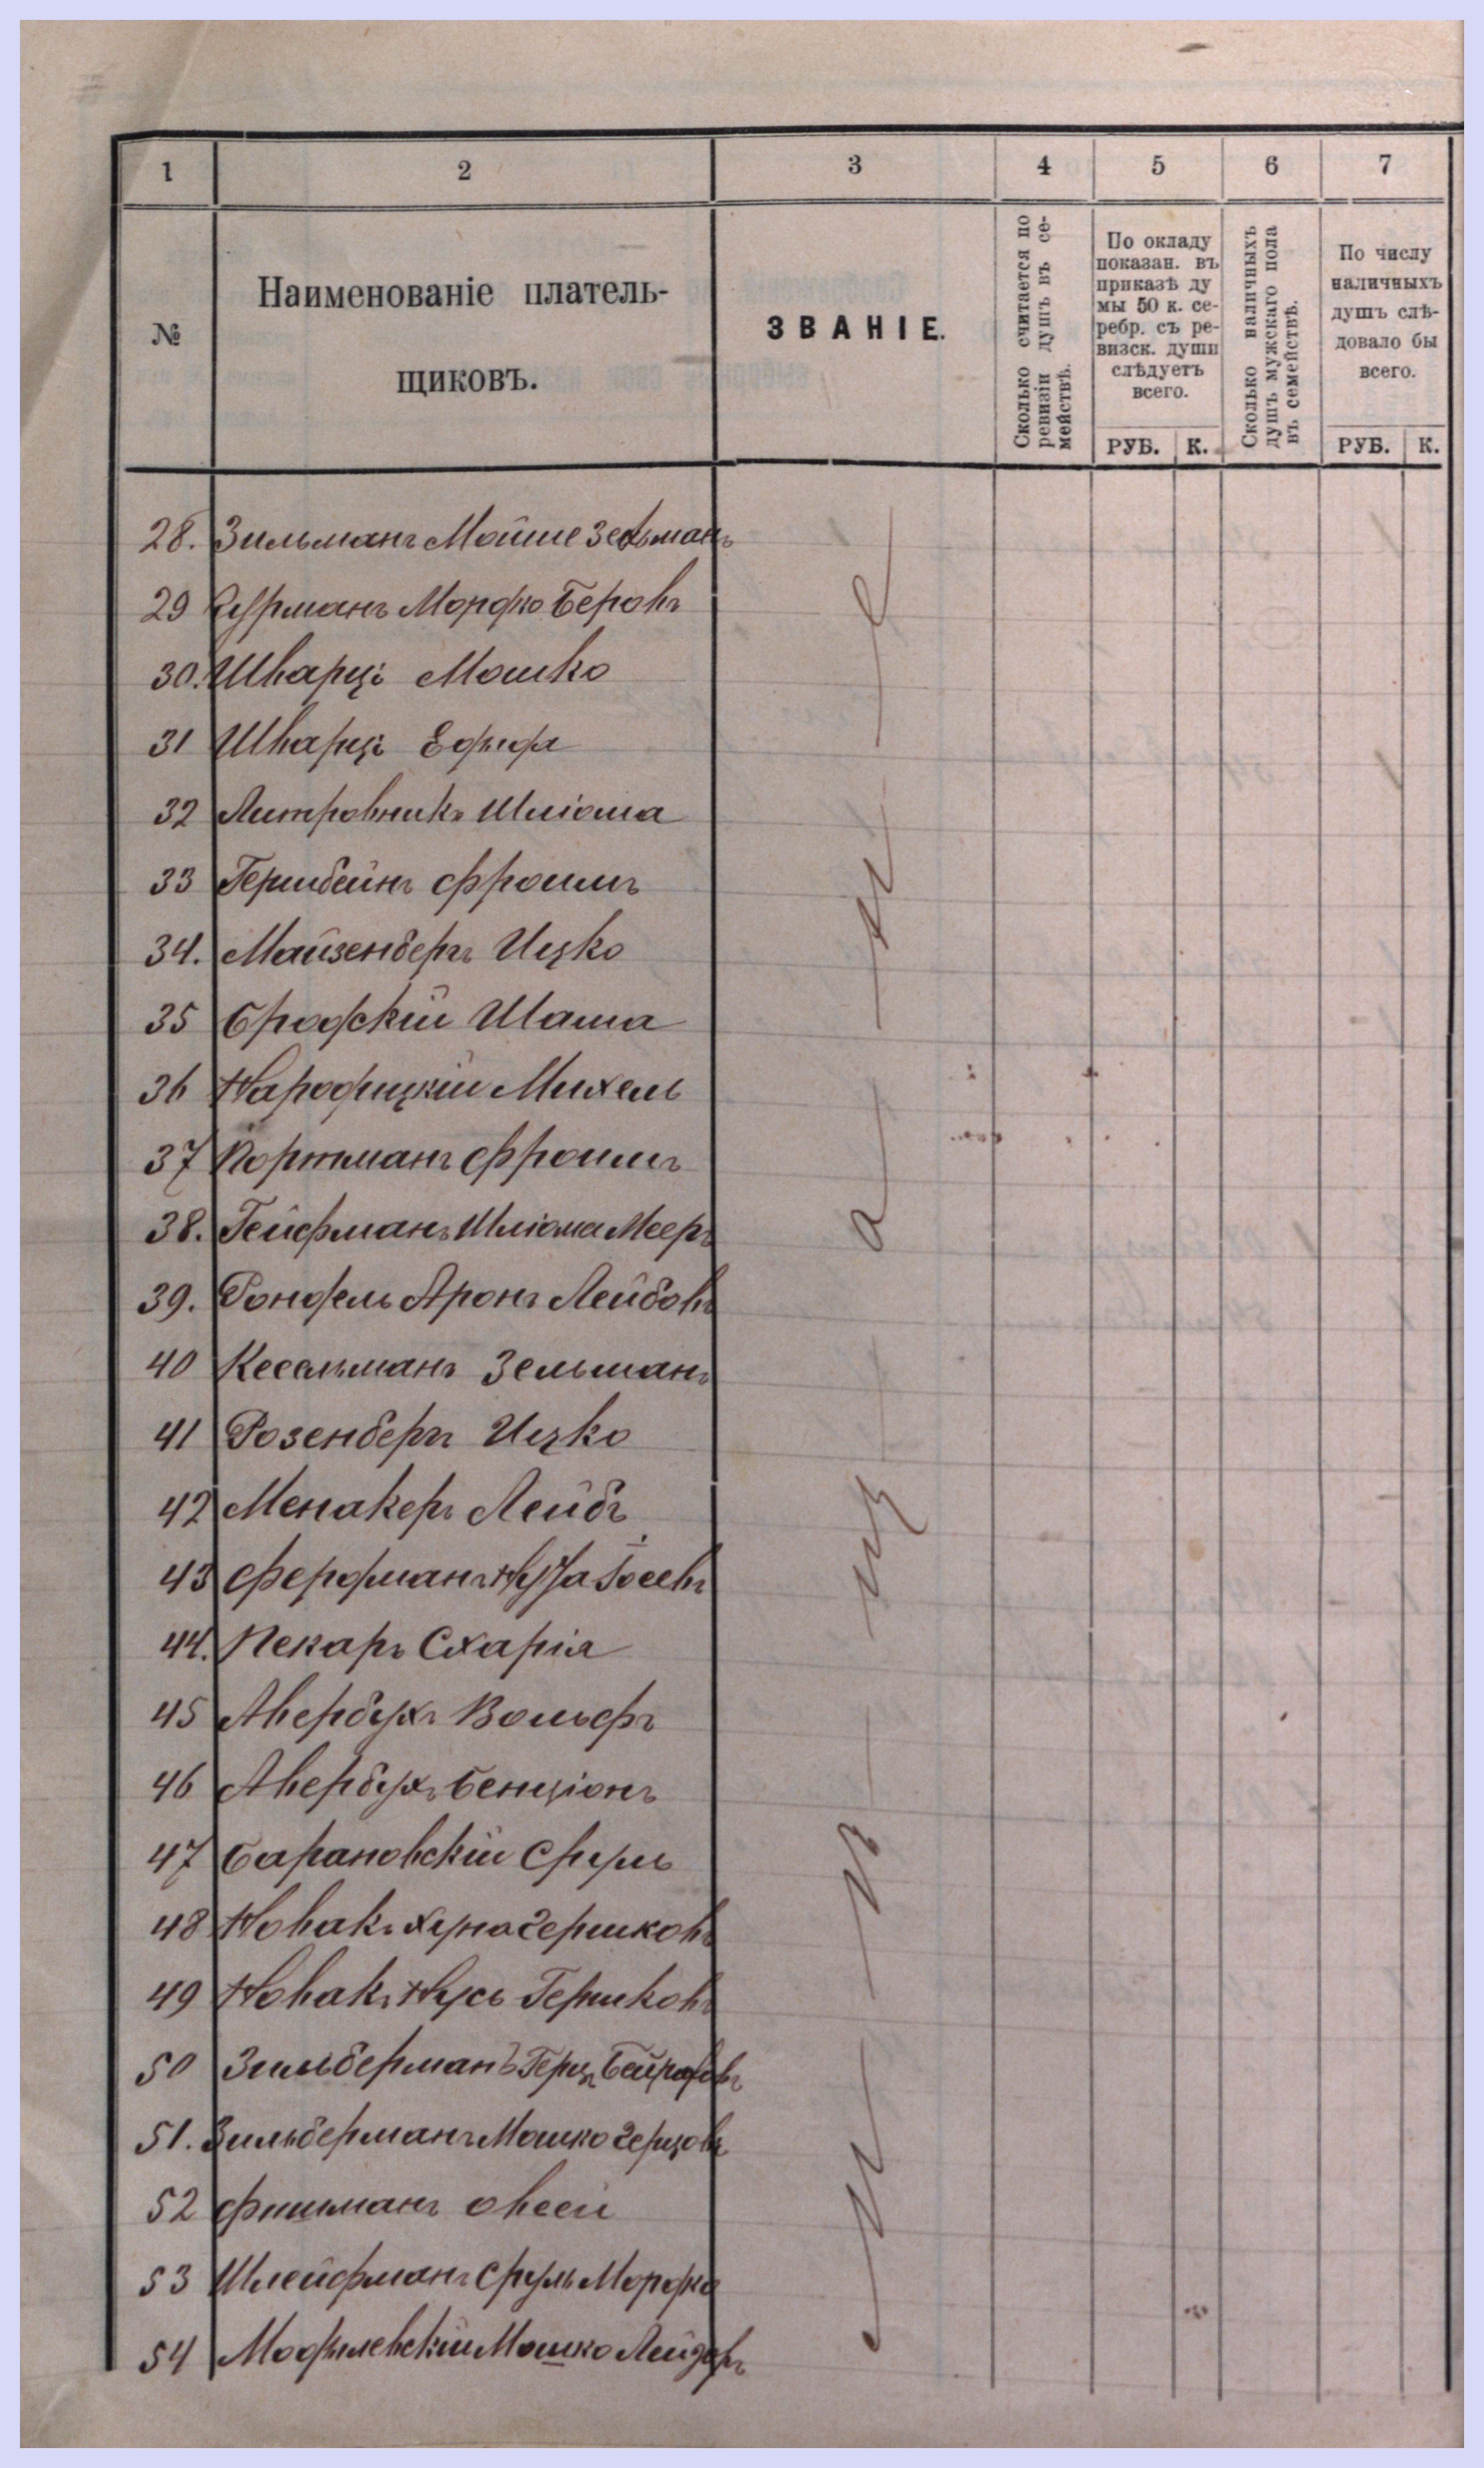 1 2 3 4 5 6 7
№
Наименованіе платель-
щиковъ.
ЗВАНІЕ.
Сколько считается по
ревизіи душъ въ се-
мействѣ.
По окладу
показан. въ
приказѣ ду
мы 50 к. се-
ребр. съ ре-
визск. души
слѣдуетъ
всего.
РУБ. К.
Сколько наличныхъ
душъ мужскаго пола
въ семействѣ.
По числу
наличныхъ
душъ слѣ-
довало бы
всего.
РУБ. К.
28. Зильманъ Мойше Зельманъ
29 Фурманъ Мордко Беровъ
30. Шварцъ Мошко
31 Шварцъ
32 Литровникъ Шліома
33 Гершбейнъ Фроимъ
34. Майзенбергъ Ицко
35 Бродскій Шама
36 Народицкій Михель
37 Портманъ Фроимъ
38. Гейфманъ Шліома Мееръ
39. Рондель Аронъ Лейбовъ
40 Кесельманъ Зельманъ
41 Розенбергъ Ицко
42 Менакеръ Лейбъ
43 Фердманъ Нута Іосевъ
44. Пекаръ Схарія
45 Авербухъ Вольфъ
46 Авербухъ Бенціонъ
47 Барановскій Сруль
48 Новакъ Хуна Гершковъ
49 Новакъ Нусь Гершковъ
50 Зильберманъ Герц
51. Зильберманъ Мошко Герцовъ
52 Фишманъ Овсей
53 Шлейфманъ Сруль Мордко
54 Мошко Лейзеръ